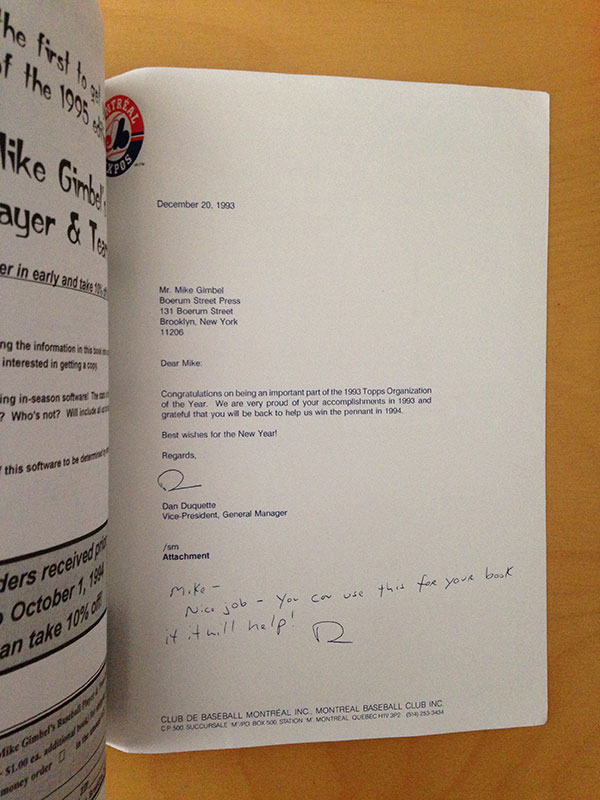 the first to get
of the 1995
Mike Gimbel's
ayer & Tea
er in early and take 10% of
ng the information in this book
interested in getting a copy.
ing in-season software! The
? Who's not? Will include all
f this software to be determined by
ders received prior
o October 1, 1994
an take 10% off!
Mike Gimbel's Baseball Player &
$1.00 ea. additional book) for
money order
in the
MONTRÉAL
EXPOS
December 20, 1993
Mr. Mike Gimbel
Boerum Street Press
131 Boerum Street
Brooklyn, New York
11206
Dear Mike:
Congratulations on being an important part of the 1993 Topps Organization
of the Year. We are very proud of your accomplishments in 1993 and
grateful that you will be back to help us win the pennant in 1994.
Best wishes for the New Year!
Regards,
Dan Duquette
Vice-President, General Manager
/sm
Attachment
Mike -
Nice job - You can use this for your book
if it will help!
CLUB DE BASEBALL MONTRÉAL INC., MONTREAL BASEBALL CLUB INC.
C.P. 500, SUCCURSALE "M"/PO BOX 500, STATION "M", MONTREAL, QUEBEC H1V 3P2 (514) 253-3434